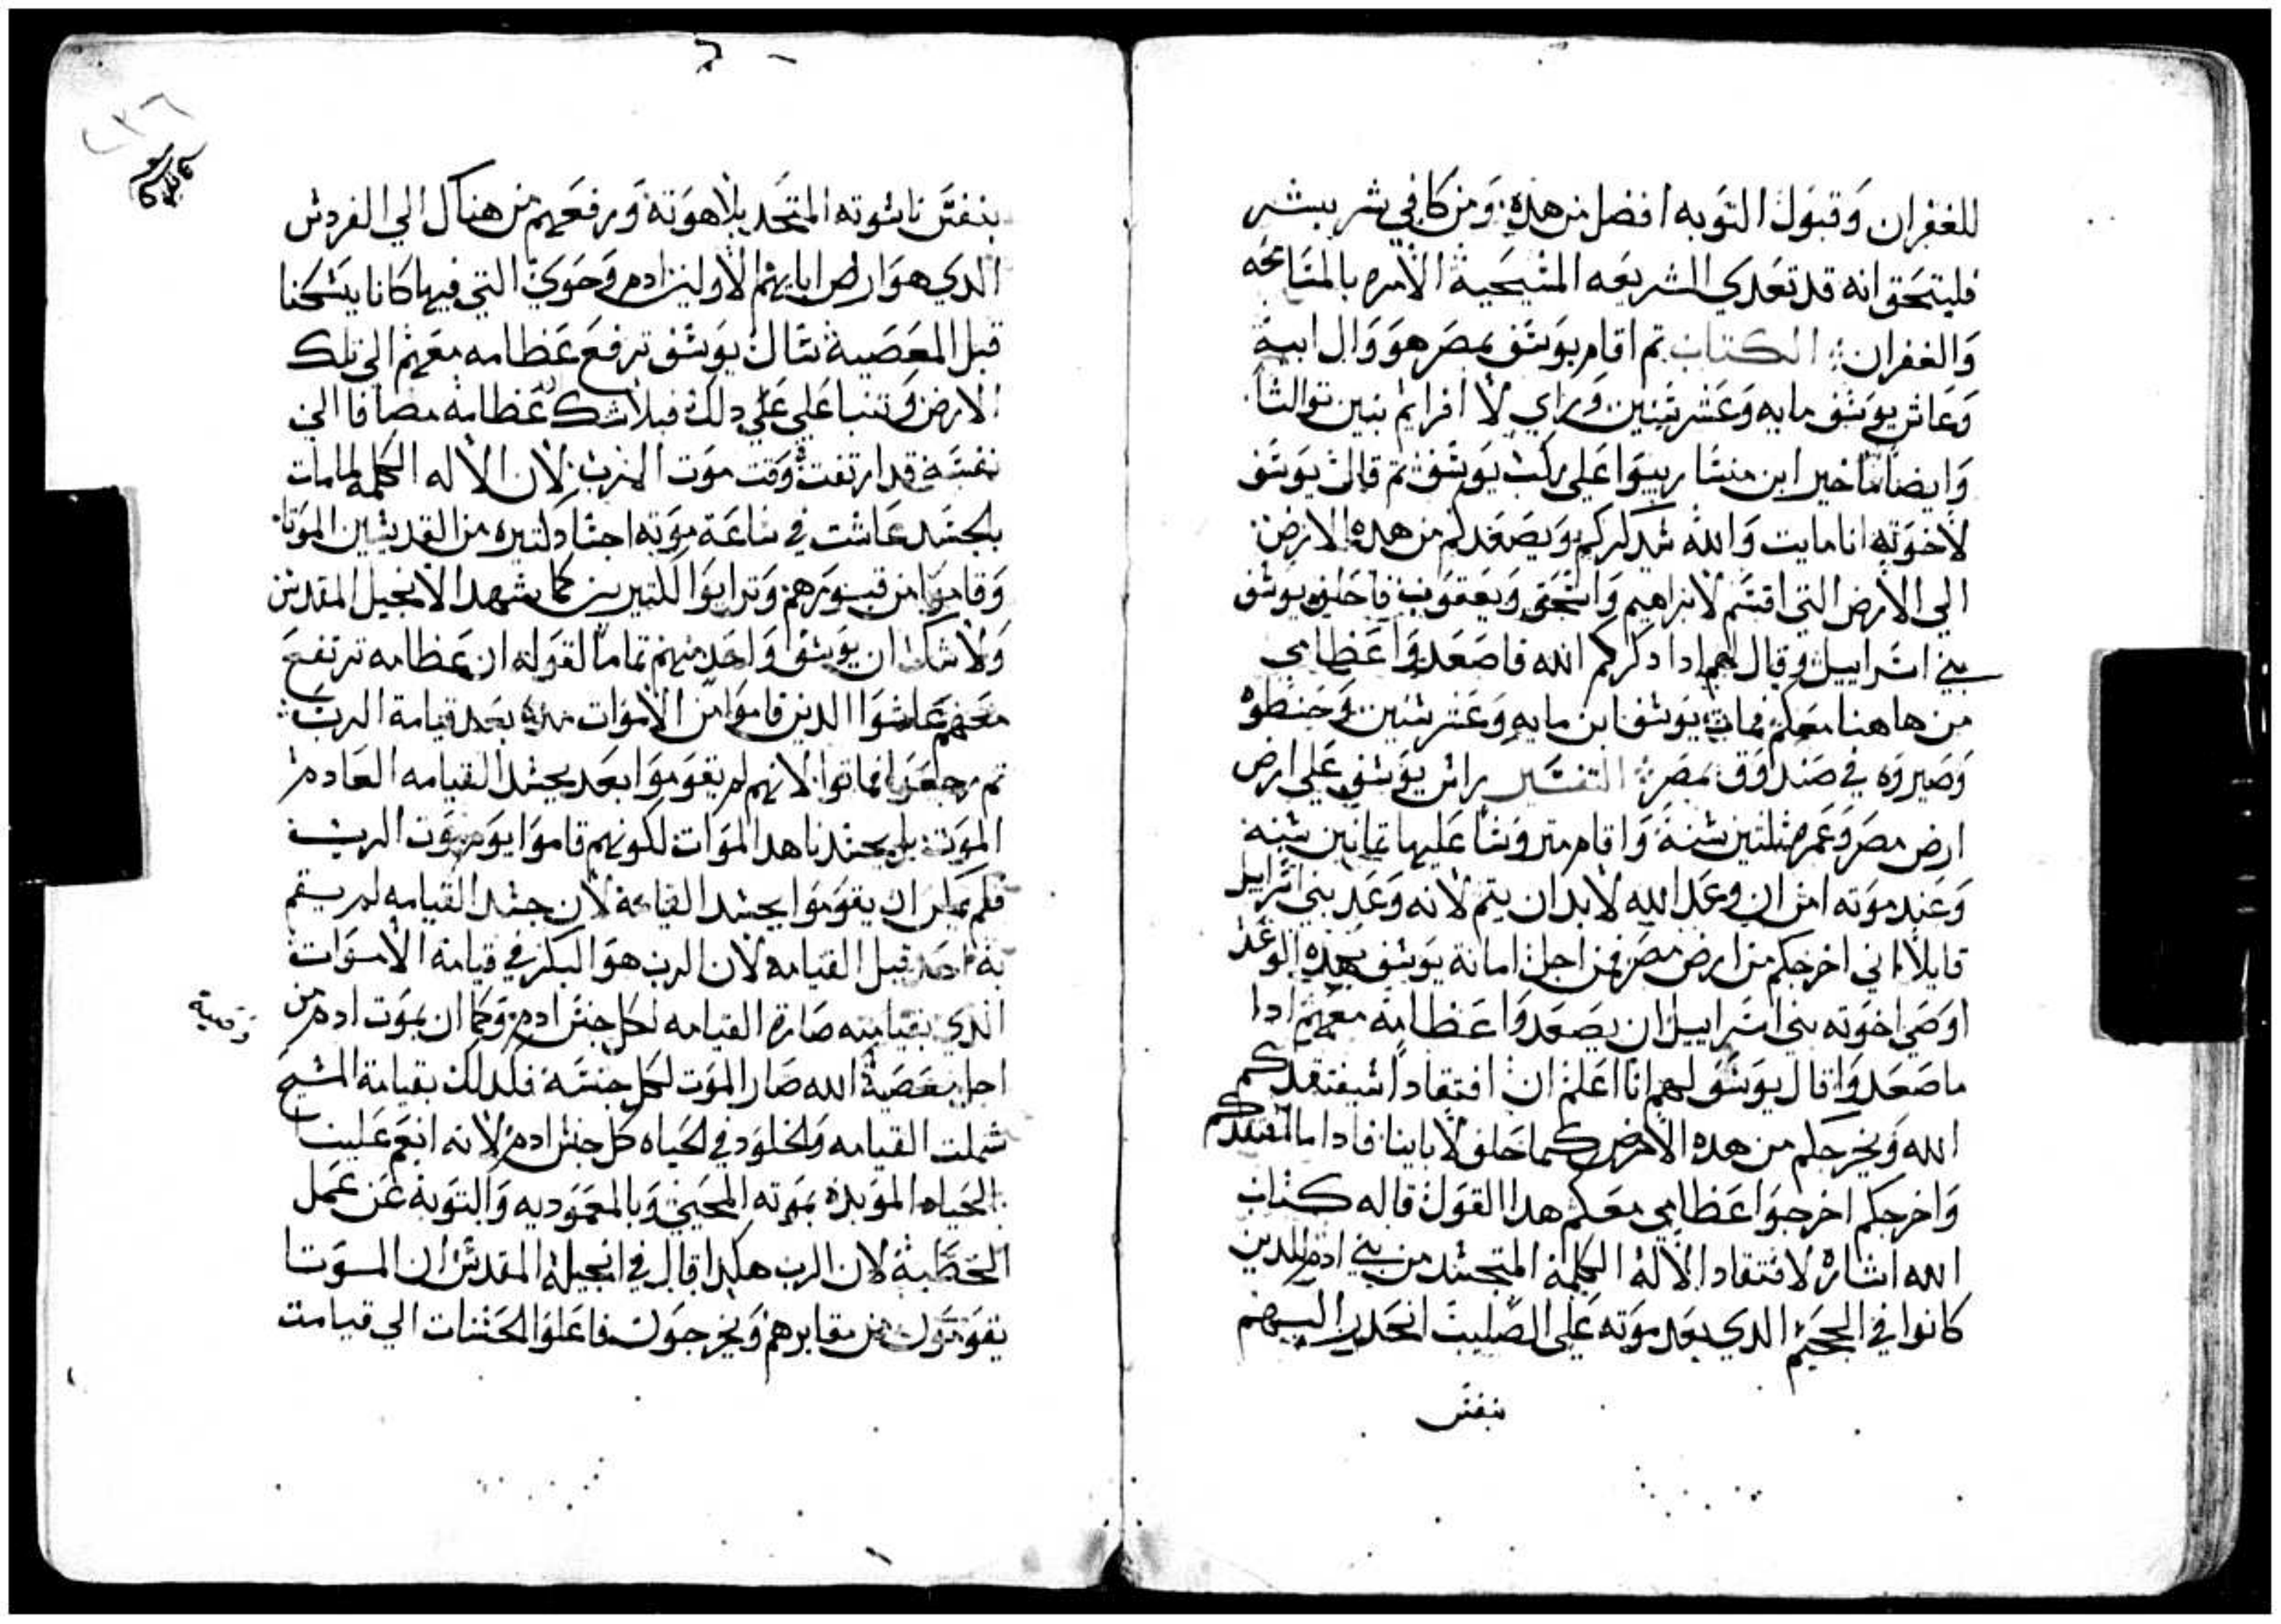 للغفران وقبول التوبه افضل من هذه ومن كافي شر بشر
فليتحقق انه قد تعدي الشريعه المسيحية الامره بالمسامحه
والغفران الكتاب تم اقام يوسف بمصر هو وال ابية
وعاش يوسف مايه وعشر سنين وراي لافرايم بنين توالتا
وايضا ماخير ابن منسا ربيوا علي ركب يوسف تم قال يوسف
لاخوته انا مايت والله سيدكركم ويصعدكم من هده الارض
الي الارض التي اقسم لابراهيم واسحق ويعقوب فاحلف يوسف
بني اسراييل وقال لهم ادا دكركم الله فاصعدوا عظامي
من هاهنا معكم فمات يوسف ابن مايه وعشر سنين وحنطوه
وصيروه في صندوق بمصر التفسير راس يوسف علي ارض
ارض مصر وعمره ثلتين سنة واقام متروسا عليها تمانين سنه
وعند موته امن ان وعد الله لابد ان يتم لانه وعد بني اسراييل
قايلا اني اخرجكم من ارض مصر فمن اجل امانة يوسف بهده الوعد
اوصي اخوته بني اسراييل ان يصعدوا عظامه معهم ادا
ما صعدوا قال يوسف لهم انا اعلم ان افتقادا سيفتقدكم
الله ويخرجكم من هده الارض كما حلف لاباينا فادا ما افتقدكم
واخرجكم اخرجوا عظامي معكم هدا القول قاله كتاب
الله اشارة لافتقاد الاله الكلمة المتجسد من بني ادم الدين
كانوا في الجحيم الدي بعد موته علي الصليب انحدر اليهم
بنفس
بنفس ناسوته المتحد بلاهوتة ورفعهم من هناك الي الفردس
الدي هو ارض ابايهم الاولين ادم وحوي التي فيها كانا يسكنا
قبل المعصية سال يوسف ترفع عظامه معهم الي تلك
الارض وتنبا علي دلك فبلا شك عظامه مضافا الي
نفسه قد ارتفعت وقت موت الرب لان الاله الكلمه لما مات
بالجسد عاشت في ساعة موته اجساد كتيره من القديسين الموتا
وقاموا من قبورهم وترايوا لكتيرين كما يشهد الانجيل المقدس
ولا شك ان يوسف واحد منهم تماما لقوله ان عظامه ترتفع
معهم عاشوا الدين قاموا من الاموات مدة بعد قيامة الرب
تم رجعوا فماتوا لانهم لم يقوموا بعد بجسد القيامه العادم
الموت بل بجسدنا هدا الموات لكونهم قاموا يوم موت الرب
فلم يمكن ان يقوموا بجسد القيامة لان جسد القيامه لم يقم
به احد قبل القيامه لان الرب هو البكر في قيامة الاموات
الدي بقيامته صارة القيامه لكل جنس ادم وكما ان بموت ادم من
اجل معصية الله صار الموت لكل جنسه فلدلك بقيامة المسيح
شملت القيامه والخلود في الحياه كل جنس ادم لانه انعم علينا
بالحياه الموبده بموته المحيي وبالمعموديه والتوبة عن عمل
الخطية لان الرب هكدا قال في انجيله المقدس ان الموتا
يقومون من مقابرهم ويخرجون فاعلوا الحسنات الي قيامت